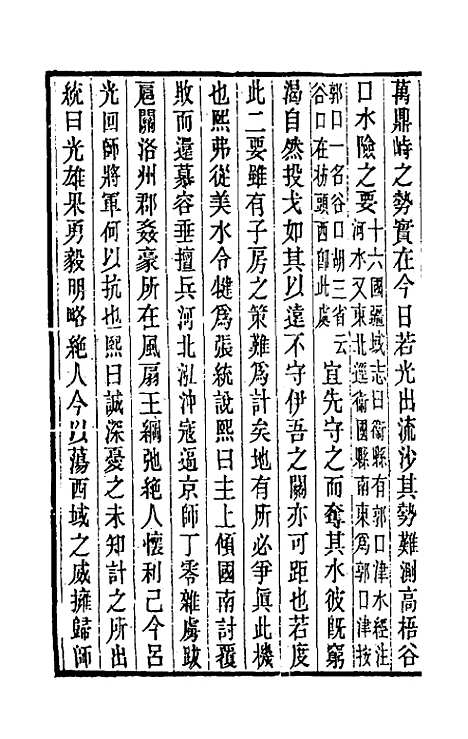 萬鼎峙之勢實在今日若光出流沙其勢難測高梧谷
口水險之要十六國疆域志曰衞縣有郭口津水經注
河水又東北逕衞國縣南東爲郭口津按
郭口一名谷口胡三省云
谷口在枋頭西卽此處宜先守之而奪其水彼旣窮
渴自然投戈如其以遠不守伊吾之關亦可距也若度
此二要雖有子房之策難爲計矣地有所必爭眞此機
也熙弗從美水令犍爲張統說熙曰主上傾國南討覆
敗而還慕容垂擅兵河北泓沖寇逼京師丁零雜虜跋
扈關洛州郡姦豪所在風扇王綱弛絕人懷利己今呂
光回師將軍何以抗也熙曰誠深憂之未知計之所出
統曰光雄果勇毅明略絕人今以蕩西域之威擁歸師